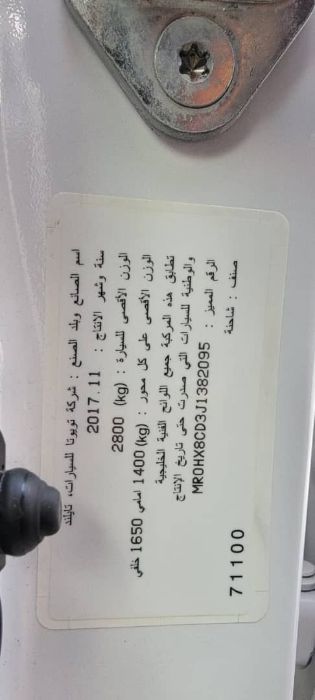 اسم الصانع وبلد الصنع : شركة تويوتا للسيارات، تايلند
سنة وشهر الانتاج : 2017.11
الوزن الأقصى للسيارة : (kg) 2800
الوزن الأقصى على كل محور : (kg) 1400 امامي 1650 خلفي
تطابق هذه المركبة جميع اللوائح الفنية الخليجية
والوطنية للسيارات التي صدرت حتى تاريخ الانتاج
الرقم المميز : MR0HX8CD3J1382095
صنف : شاحنة
71100